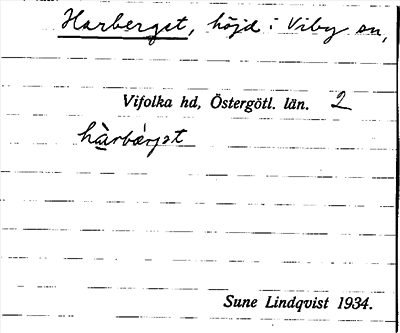 Harberget, höjd i Viby sn,
Vifolka hd, Östergötl. län. 2
hàrbærjət
Sune Lindqvist 1934.